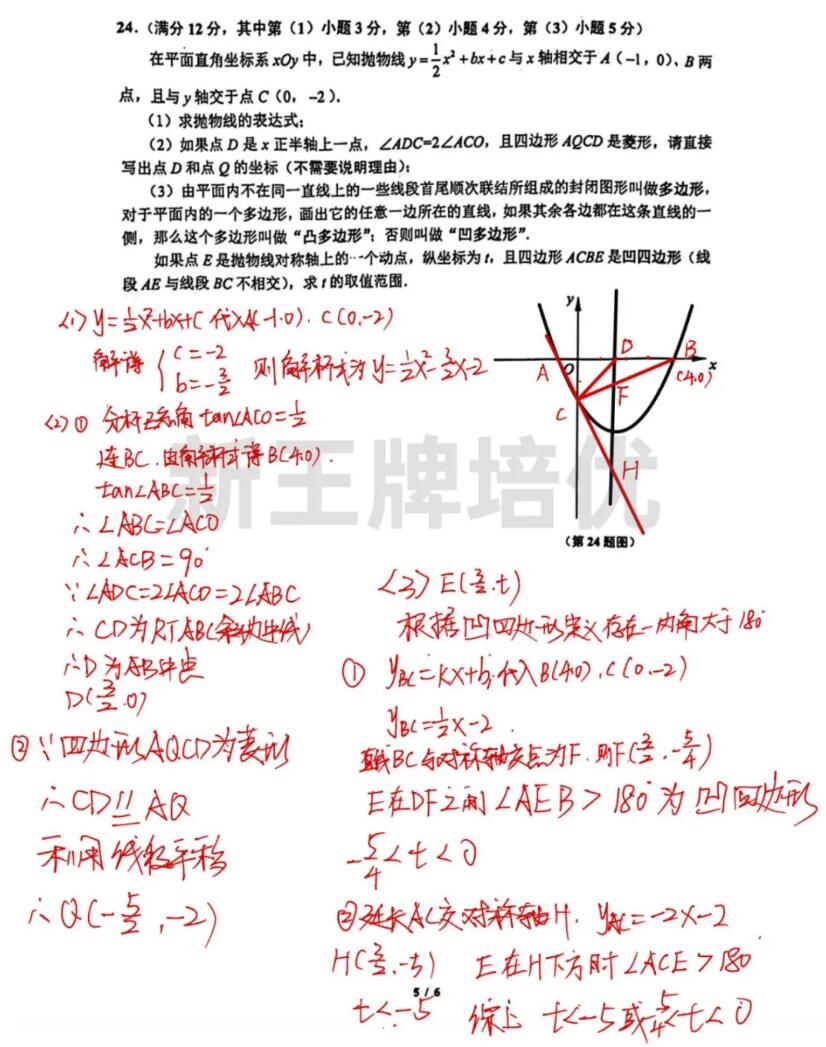 24.（满分12分，其中第（1）小题3分，第（2）小题4分，第（3）小题5分）
在平面直角坐标系xOy中，已知抛物线y=\frac{1}{2}x²+bx+c与x轴相交于A（-1，0）、B两
点，且与y轴交于点C（0，-2）.
（1）求抛物线的表达式；
（2）如果点D是x正半轴上一点，∠ADC=2∠ACO，且四边形AQCD是菱形，请直接
写出点D和点Q的坐标（不需要说明理由）；
（3）由平面内不在同一直线上的一些线段首尾顺次联结所组成的封闭图形叫做多边形，
对于平面内的一个多边形，画出它的任意一边所在的直线，如果其余各边都在这条直线的一
侧，那么这个多边形叫做“凸多边形”；否则叫做“凹多边形”.
如果点E是抛物线对称轴上的一个动点，纵坐标为t，且四边形ACBE是凹四边形（线
段AE与线段BC不相交），求t的取值范围.
<1> y=½x²+bx+c 代入A(-1.0). C(0.-2)
解得 { c=-2
b=-3/2 则解析式为 y=½x²-3/2x-2
y
A O D B x
(4.0)
C F
H
（第24题图）
<2>① 分析三角 tan∠ACO=½
连BC. 由解析式得B(4.0).
tan∠ABC=½
∴∠ABC=∠ACO
∴∠ACB=90°
∵∠ADC=2∠ACO=2∠ABC
∴CD为RT△ABC斜边中线
∴D为AB中点
D(3/2.0)
② ∵四边形AQCD为菱形
∴CD∥AQ
利用线段平移
∴Q(-5/2,-2)
<3> E(3/2.t)
根据凹四边形定义存在一内角大于180°
① y_BC=kx+b,代入B(4.0).C(0.-2)
y_BC=½x-2.
直线BC与对称轴交点为F.则F(3/2.-5/4)
E在DF之间 ∠AEB>180°为凹四边形
-5/4<t<0
②延长AC交对称轴H. y_AC=-2x-2
H(3/2.-5) E在H下方时∠ACE>180°
t<-5 综上 t<-5或-5/4<t<0
5 / 6
新王牌培优